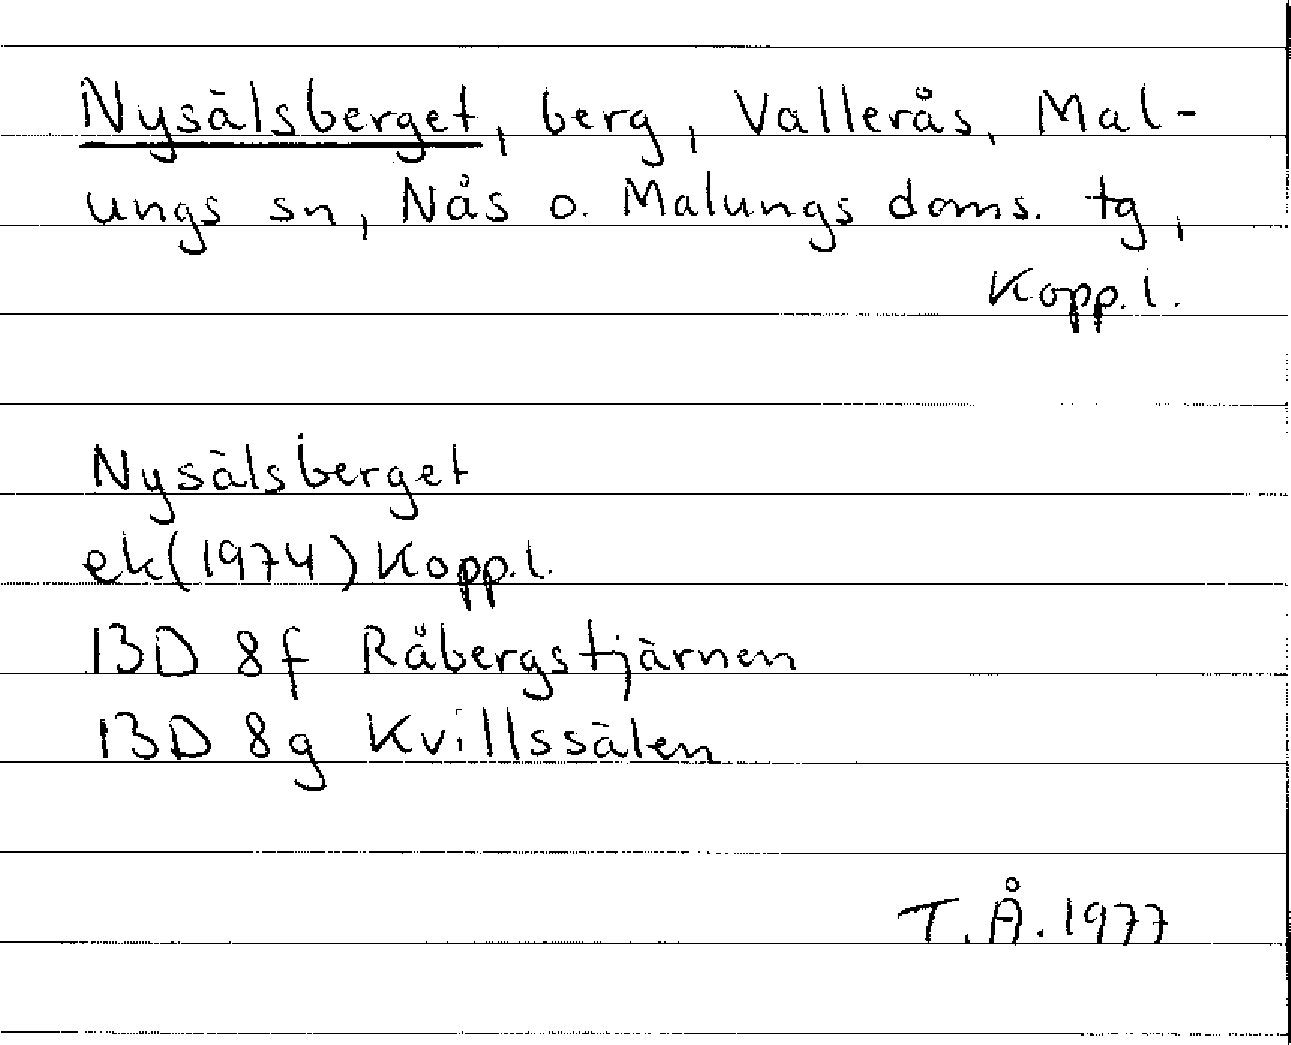 Nysälsberget, berg, Vallerås, Mal-
ungs sn, Nås o. Malungs doms. tg,
Kopp. l.
Nysälsberget
ek(1974) Kopp. l.
13D 8f Råbergstjärnen
13D 8g Kvillssälen
T. Å. 1977